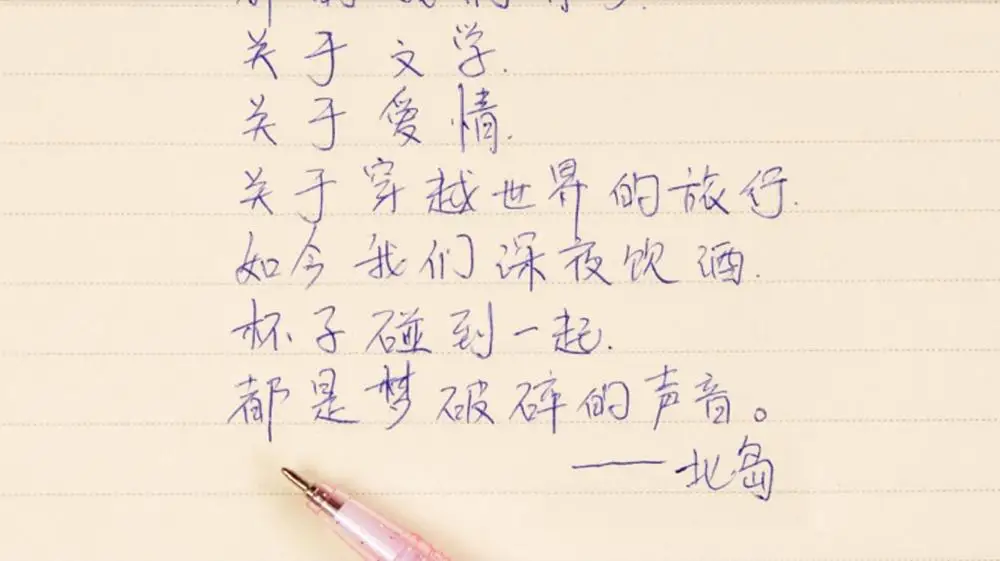 关于文学.
关于爱情.
关于穿越世界的旅行.
如今我们深夜饮酒.
杯子碰到一起.
都是梦破碎的声音。
——北岛